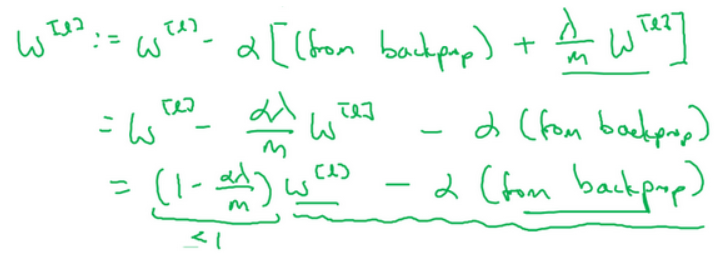 W^[l] := W^[l] - α [(from backprop) + λ/m W^[l]]
= W^[l] - αλ/m W^[l] - α (from backprop)
= (1 - αλ/m) W^[l] - α (from backprop)
<1